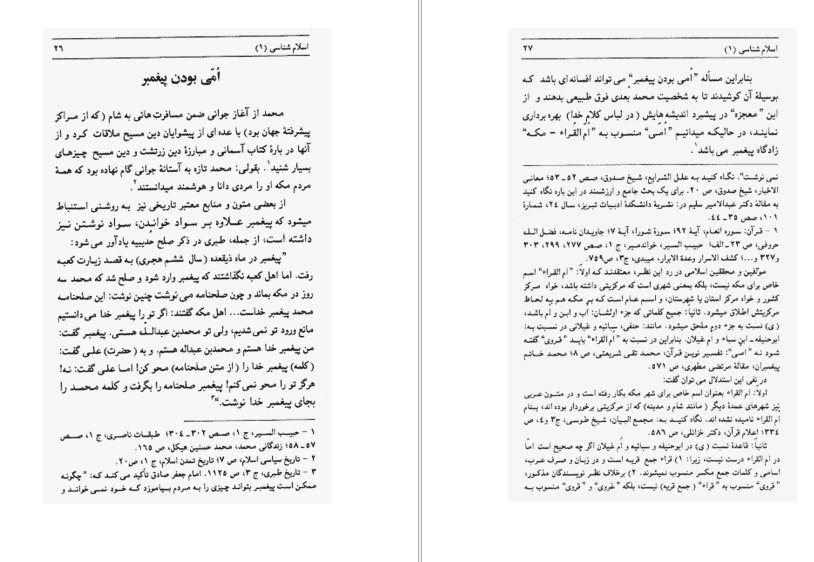 اسلام شناسی (۱)
۲۶
اُمّی بودن پیغمبر
محمد از آغاز جوانی ضمن مسافرت هائی به شام (که از مراکز
پیشرفتهٔ جهان بود) با عده ای از پیشوایان دین مسیح ملاقات کرد و از
آنها در بارهٔ کتاب آسمانی و مبارزهٔ دین زرتشت و دین مسیح چیزهای
بسیار شنید۱. بقولی: محمد تازه به آستانهٔ جوانی گام نهاده بود که همهٔ
مردم مکه او را مردی دانا و هوشمند میدانستند۲.
از بعضی متون و منابع معتبر تاریخی نیز به روشنی استنباط
میشود که پیغمبر علاوه بر سواد خواندن، سواد نوشتن نیز
داشته است، از جمله، طبری در ذکر صلح حدیبیه یادآور می شود:
"پیغمبر در ماه ذیقعده (سال ششم هجری) به قصد زیارت کعبه
رفت. اما اهل کعبه نگذاشتند که پیغمبر وارد شود و صلح شد که محمد سه
روز در مکه بماند و چون صلحنامه می نوشت چنین نوشت: این صلحنامه
محمد پیغمبر خداست... اهل مکه گفتند: اگر تو را پیغمبر خدا می دانستیم
مانع ورود تو نمی شدیم، ولی تو محمدبن عبداللـه هستی. پیغمبر گفت:
من پیغمبر خدا هستم و محمدبن عبداله هستم. و به (حضرت) علی گفت:
(کلمه) پیغمبر خدا را (از متن صلحنامه) محو کن! اما علی گفت: نه!
هرگز تو را محو نمی کنم! پیغمبر صلحنامه را بگرفت و کلمه محمد را
بجای پیغمبر خدا نوشت."۳
۱ - حبیب السیر، ج ۱، صص ۳۰۲ـ۳۰۴؛ طبقات ناصری، ج ۱، صص
۵۷ـ۵۸؛ زندگانی محمد، محمد حسنین هیکل، ص ۱۶۵.
۲ - تاریخ سیاسی اسلام، ص ۷؛ تاریخ تمدن اسلام، ج ۱، ص۲۰.
۳ - تاریخ طبری، ج ۳، ص ۱۱۲۵. امام جعفر صادق تأکید می کند که: "چگونه
ممکن است پیغمبر بتواند چیزی را به مردم بیاموزد که خود نمی خواند و
اسلام شناسی (۱)
۲۷
بنابراین مسأله "اُمی بودن پیغمبر" می تواند افسانه ای باشد که
بوسیلهٔ آن کوشیدند تا به شخصیت محمد بعدی فوق طبیعی بدهند و از
این "معجزه" در پیشبرد اندیشه هایش (در لباس کلام خدا) بهره برداری
نمایند، در حالیکه میدانیم "اُمی" منسوب به "ام القراء - مکه"
زادگاه پیغمبر می باشد۱.
نمی نوشت". نگاه کنید به علل الشرایع، شیخ صدوق، صص ۵۲ـ۵۳؛ معانی
الاخبار، شیخ صدوق، ص ۲۰. برای یک بحث جامع و ارزشمند در این باره نگاه کنید
به مقالهٔ دکتر عبدالامیر سلیم در: نشریهٔ دانشکدهٔ ادبیات تبریز، سال ۲۴، شمارهٔ
۱۰۱، صص ۳۵ـ۴۴.
۱ - قرآن: سوره انعام، آیهٔ ۹۲؛ سورهٔ شورا، آیهٔ ۷؛ جاویدان نامه، فضل الله
حروفی، ص ۲۳ـ الف؛ حبیب السیر، خواندمیر، ج ۱، صص ۲۷۷، ۲۹۹، ۳۰۳
و۳۲۷ و...؛ کشف الاسرار وعدة الابرار، میبدی، ج۳، ص۷۵۹.
مولفین و محققین اسلامی در رد این نظر، معتقدند که اولاً: "ام القراء" اسم
خاص برای مکه نیست، بلکه بمعنی شهری است که مرکزیتی داشته باشد، خواه مرکز
کشور و خواه مرکز استان یا شهرستان، و اسم عام است که بر مکه هم به لحاظ
مرکزیتش اطلاق میشود. ثانیاً: جمیع کلماتی که جزء اولشان: اب و ابن و ام باشد،
(ی) نسبت به جزء دوم ملحق میشود. مانند: حنفی، سبائیه و غیلانی در نسبت به:
ابوحنیفه ـ ابن سباء و ام غیلان. بنابراین در نسبت به "ام القراء" باید "قروی" گفته
شود نه "امی": تفسیر نوین قرآن، محمد تقی شریعتی، ص ۸؛ محمد خاتم
پیغمبران، مقالهٔ مرتضی مطهری، ص ۵۷۱.
در نفی این استدلال می توان گفت:
اولا: ام القراء بعنوان اسم خاص برای شهر مکه بکار رفته است و در متون عربی
نیز شهرهای عمدهٔ دیگر (مانند شام و مدینه) که از مرکزیتی برخوردار بوده اند، بنام
ام القراء نامیده نشده اند. نگاه کنید به: مجمع البیان، شیخ طوسی، ج۳ و۴، ص
۳۳۴؛ اعلام قرآن، دکتر خزائلی، ص ۵۸۶.
ثانیاً: قاعدهٔ نسبت (ی) در ابوحنیفه و سبائیه و اُم غیلان اگر چه صحیح است امّا
در ام القراء درست نیست، زیرا: ۱) قراء جمع قریه است و در زبان و صرف عرب،
اسامی و کلمات جمع مکسر منسوب نمیشوند. ۲) برخلاف نظر نویسندگان مذکور،
"قروی" منسوب به "قراء" (جمع قریه) نیست، بلکه "غروی" و "قروی" منسوب به